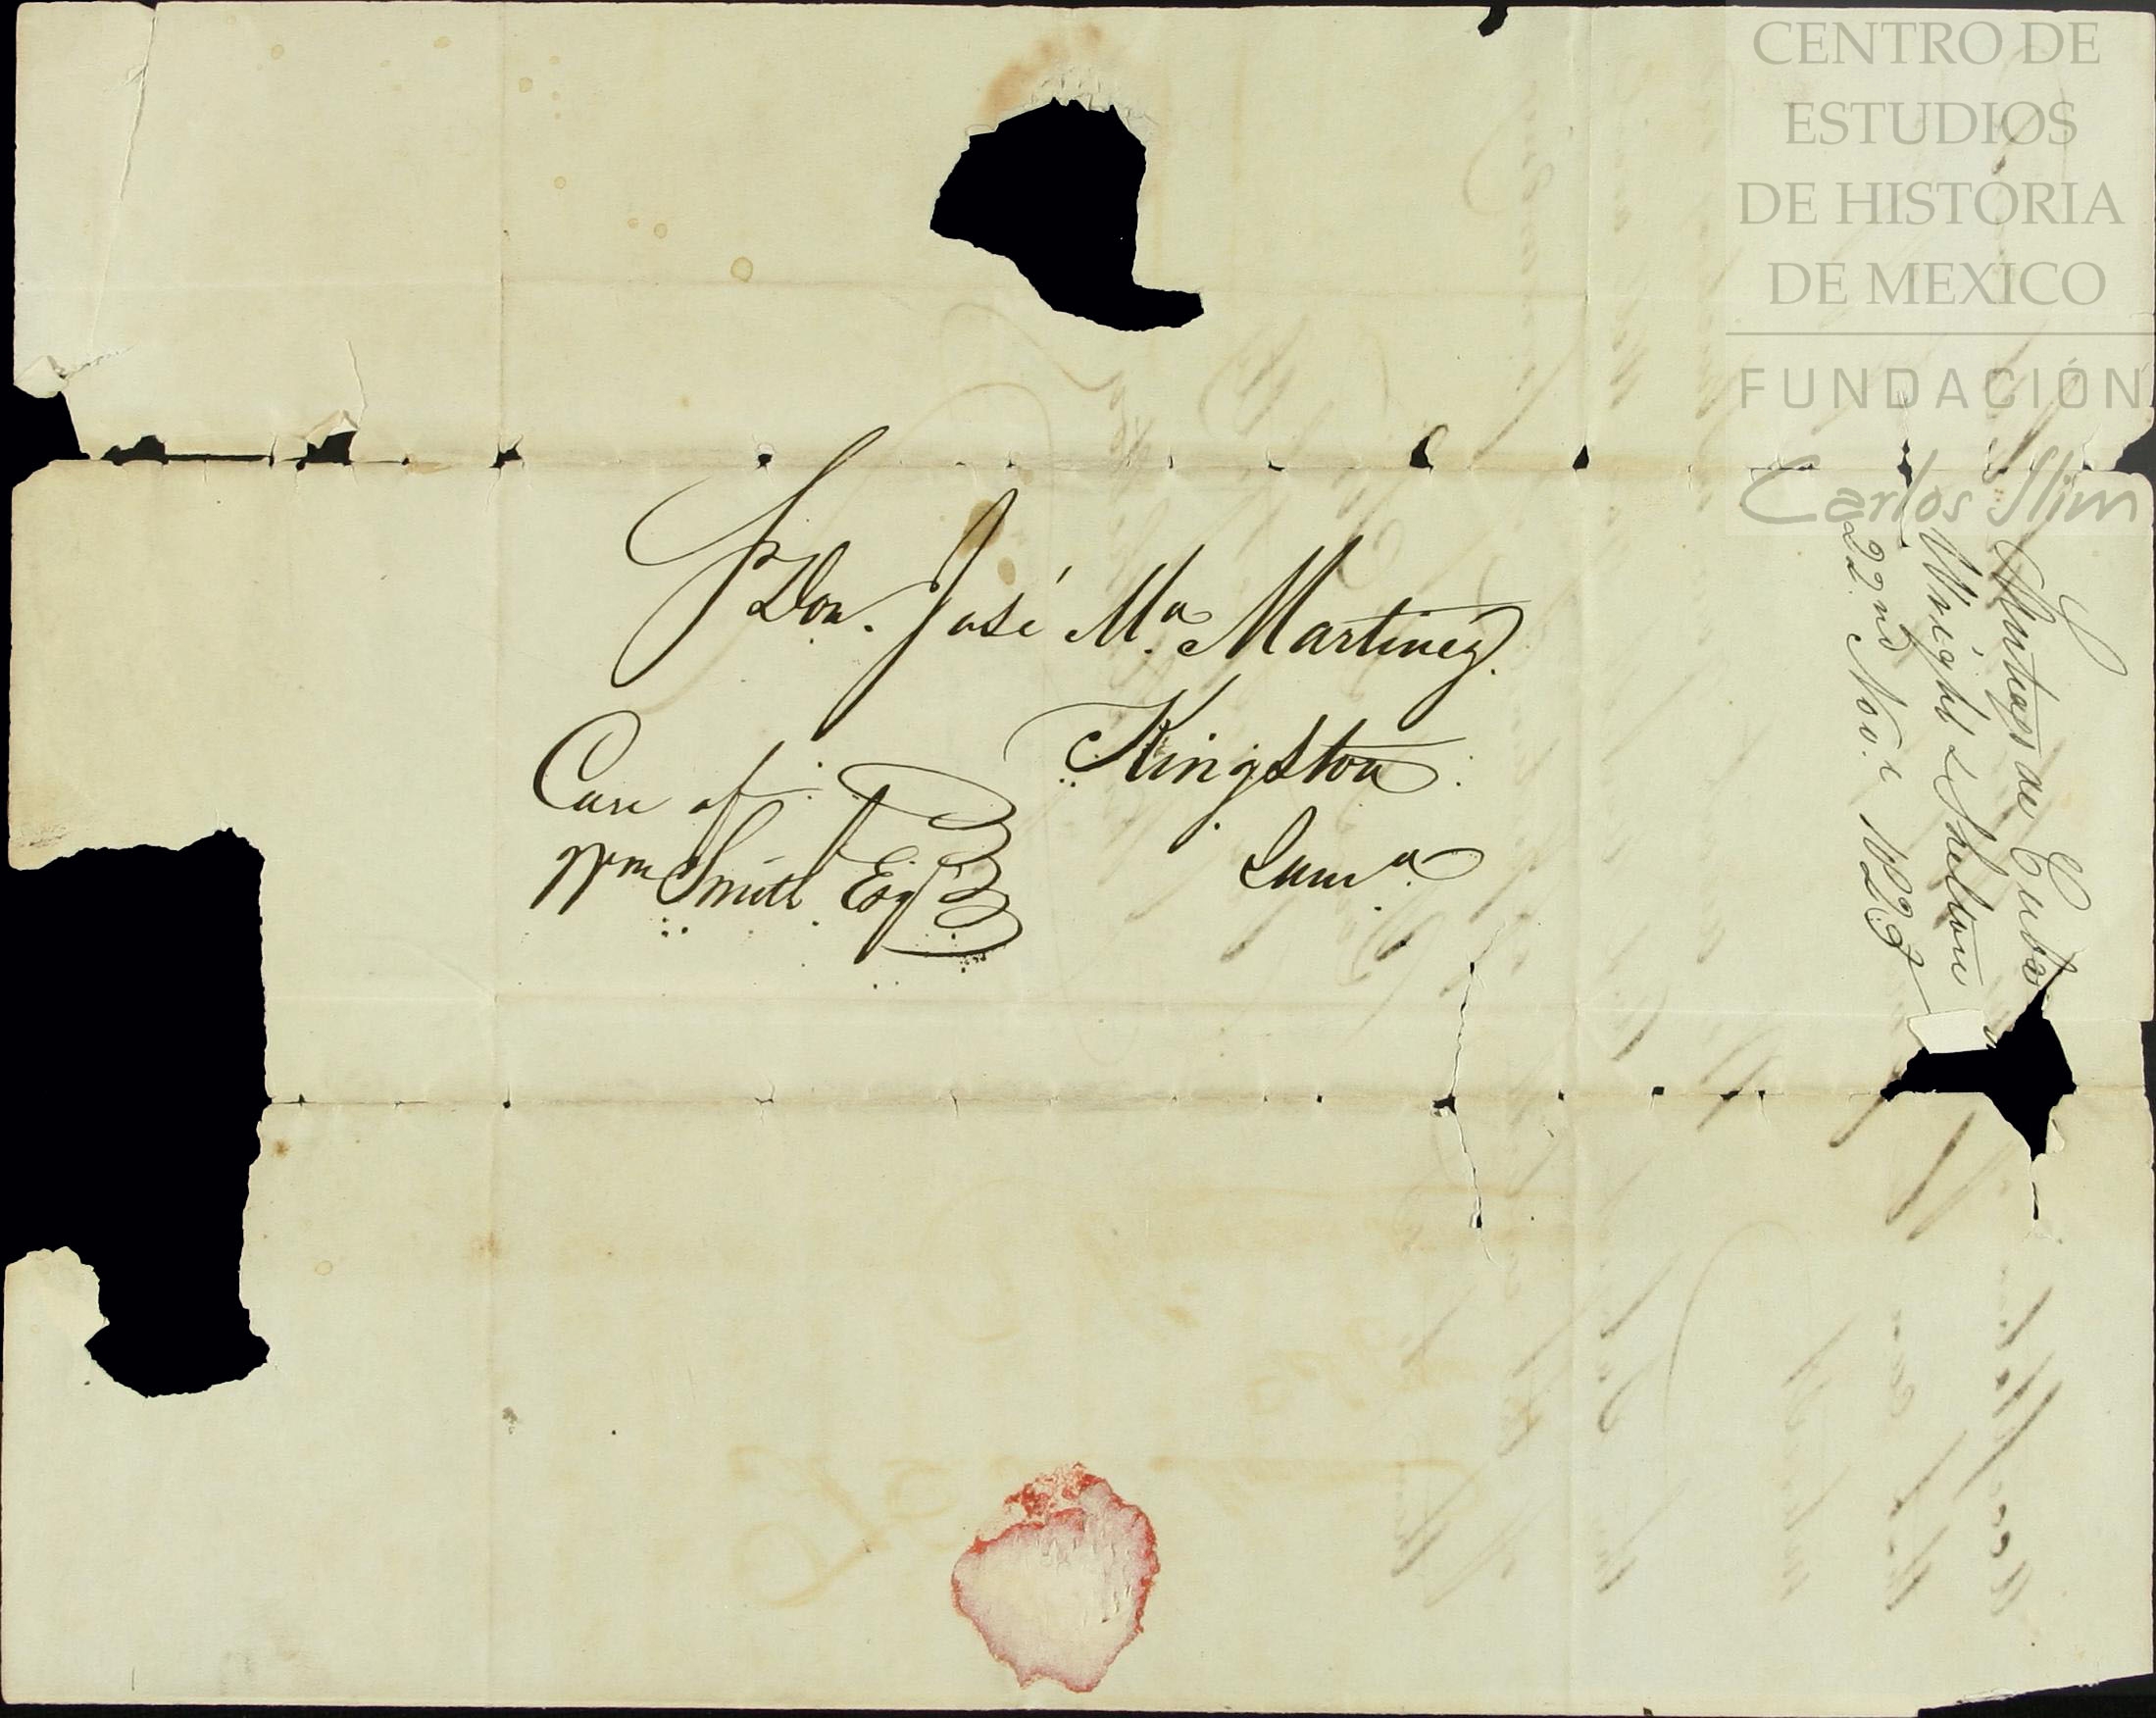 CENTRO DE
ESTUDIOS
DE HISTORIA
DE MEXICO
FUNDACIÓN
Carlos Slim
Sr Don. José Ma. Martinez.
Kingston
Jama.
Care of
Wm Smith Esqr
Santiago de Cuba
Wright & Shelton
22nd Nov.r 182